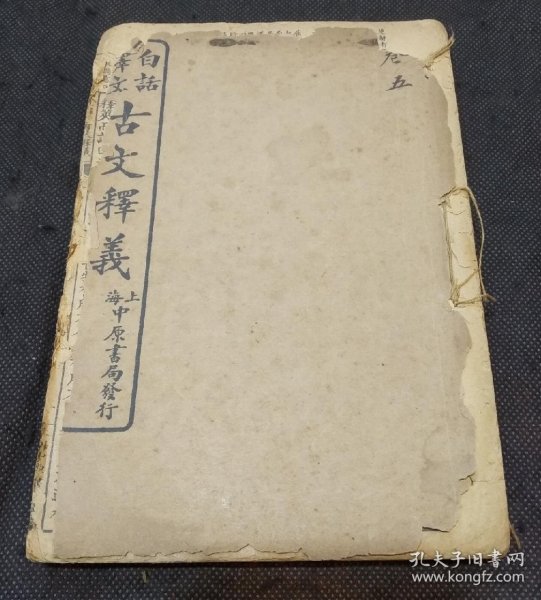 白話
譯文
古文釋義
上海
中原書局發行
卷五
孔夫子旧书网
www.kongfz.com